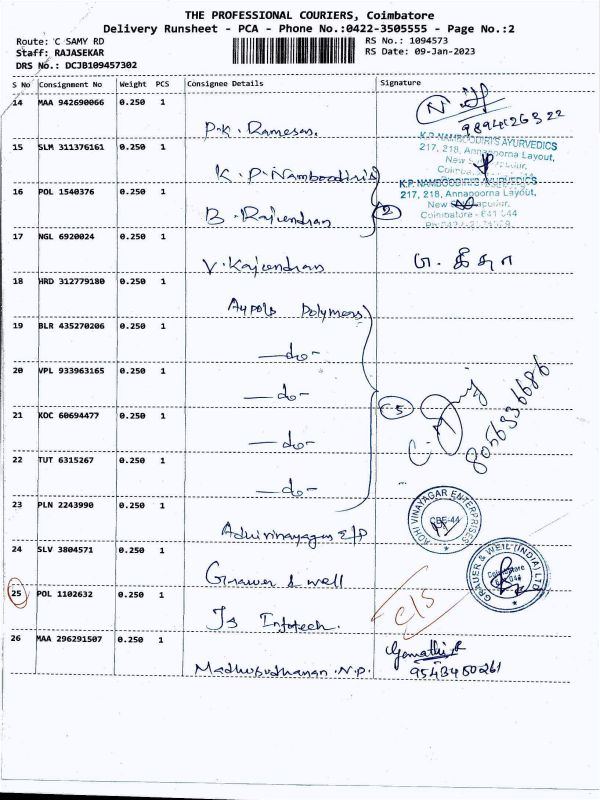 THE PROFESSIONAL COURIERS, Coimbatore
Delivery Runsheet - PCA - Phone No.:0422-3505555 - Page No.:2
Route: C SAMY RD
Staff: RAJASEKAR
DRS No.: DCJB109457302
RS No.: 1094573
RS Date: 09-Jan-2023
S No Consignment No Weight PCS Consignee Details Signature
14 MAA 942690066 0.250 1
P.K. Ramesan.
15 SLM 311376161 0.250 1
K.P. Namboodiris
K.P. NAMBOODIRI'S AYURVEDICS
217, 218, Annapoorna Layout,
16 POL 1540376 0.250 1
B. Rajendran
2
K.P. NAMBOODIRI'S AYURVEDICS
217, 218, Annapoorna Layout,
Coimbatore - 641 044
17 NGL 6920024 0.250 1
18 HRD 312779180 0.250 1
Polymers
19 BLR 435270206 0.250 1
-do-
20 VPL 933963165 0.250 1
-do-
5
8056336686
21 KOC 60694477 0.250 1
-do-
22 TUT 6315267 0.250 1
-do-
23 PLN 2243990 0.250 1
ADHI VINAYAGAR ENTERPRISES
CBE-44
24 SLV 3804571 0.250 1
GRAUER & WEIL (INDIA) LTD
Coimbatore
25 POL 1102632 0.250 1
Infotech.
26 MAA 296291507 0.250 1
Madhusudhanan .N.P.